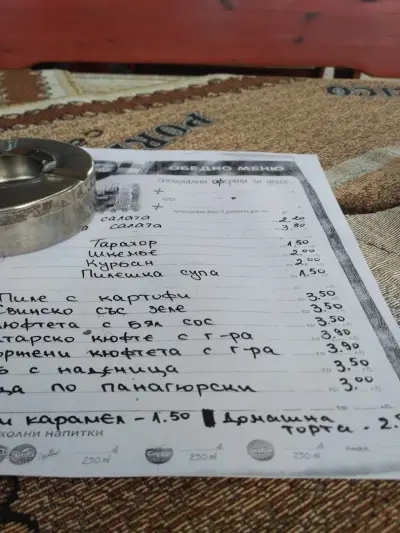 ОБЕДНО МЕНЮ
СПЕЦИАЛНИ ОФЕРТИ ЗА ДЕНЯ
+
+
салата 2.20
салата 3.80
Таратор 1.50
Шкембе 2.00
Курбан 2.00
Пилешка супа 1.50
Пиле с картофи 3.50
Свинско със зеле 3.50
Кюфтета с бял сос 3.50
атарско кюфте с г-ра 3.90
ържени кюфтета с г-ра 3.90
б с наденица 3.50
ца по панагюрски 3.00
м карамел - 1.50 Домашна
торта - 2.5
холни напитки
250 ml 250 ml